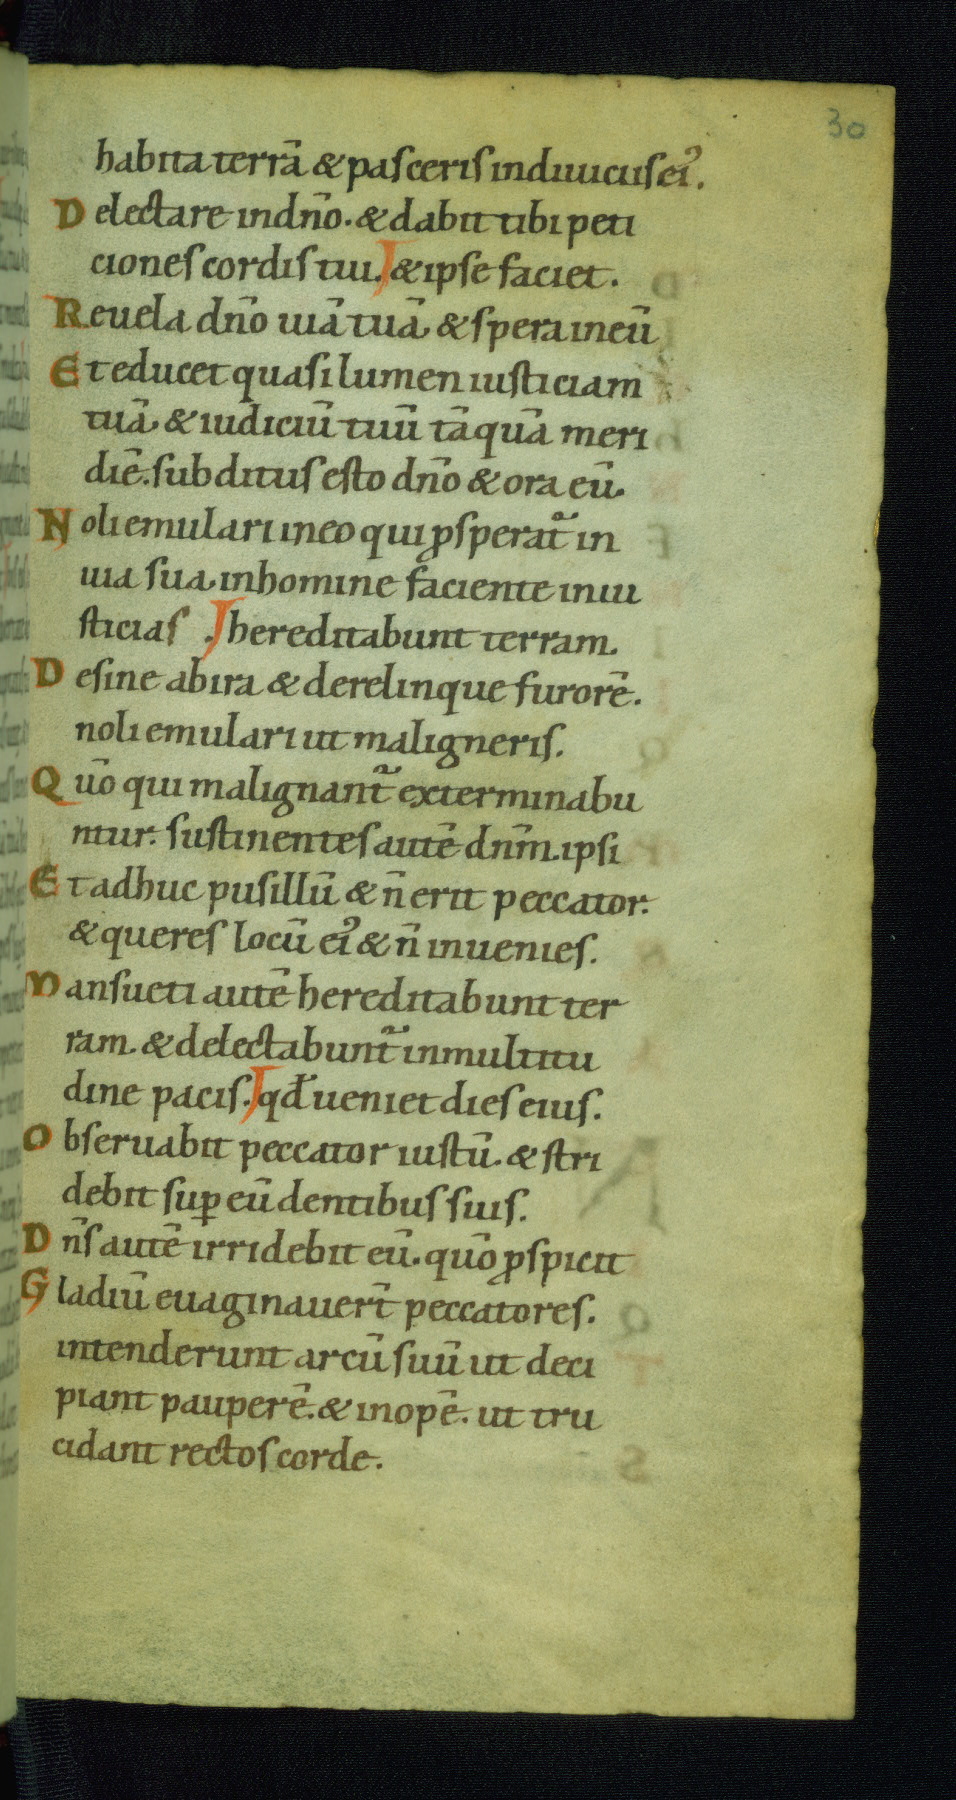 30
habita terrā & pasceris in diuicus ei᾿.
Delectare in dn̄o. & dabit tibi peti
ciones cordis tui. & ipse faciet.
Reuela dn̄o uiā tuā & spera in eū
Et educet quasi lumen iusticiam
tuā & iudiciū tuū tāquā meri
diē. subditus esto dn̄o & ora eū.
Noli emulari in eo qui ꝓsperat̃ in
uia sua. in homine faciente iniu
sticias . hereditabunt terram.
Desine ab ira & derelinque furorē.
noli emulari ut maligneris.
Quō qui malignant̃ exterminabu
ntur. sustinentes autē dn̄m. ipsi
Et adhuc pusillū & n̄ erit peccator.
& queres locū ei᾿ & n̄ inuenies.
Mansueti autē hereditabunt ter
ram. & delectabunt̃ in multitu
dine pacis. qđ ueniet dies eius.
Obseruabit peccator iustū. & stri
debit suꝑ eū dentibus suis.
Dn̄s autē irridebit eū. quō ꝓspicit
Gladiū euaginauer̄t peccatores.
intenderunt arcū suū ut deci
piant pauperē. & inopē. ut tru
cidant rectos corde.